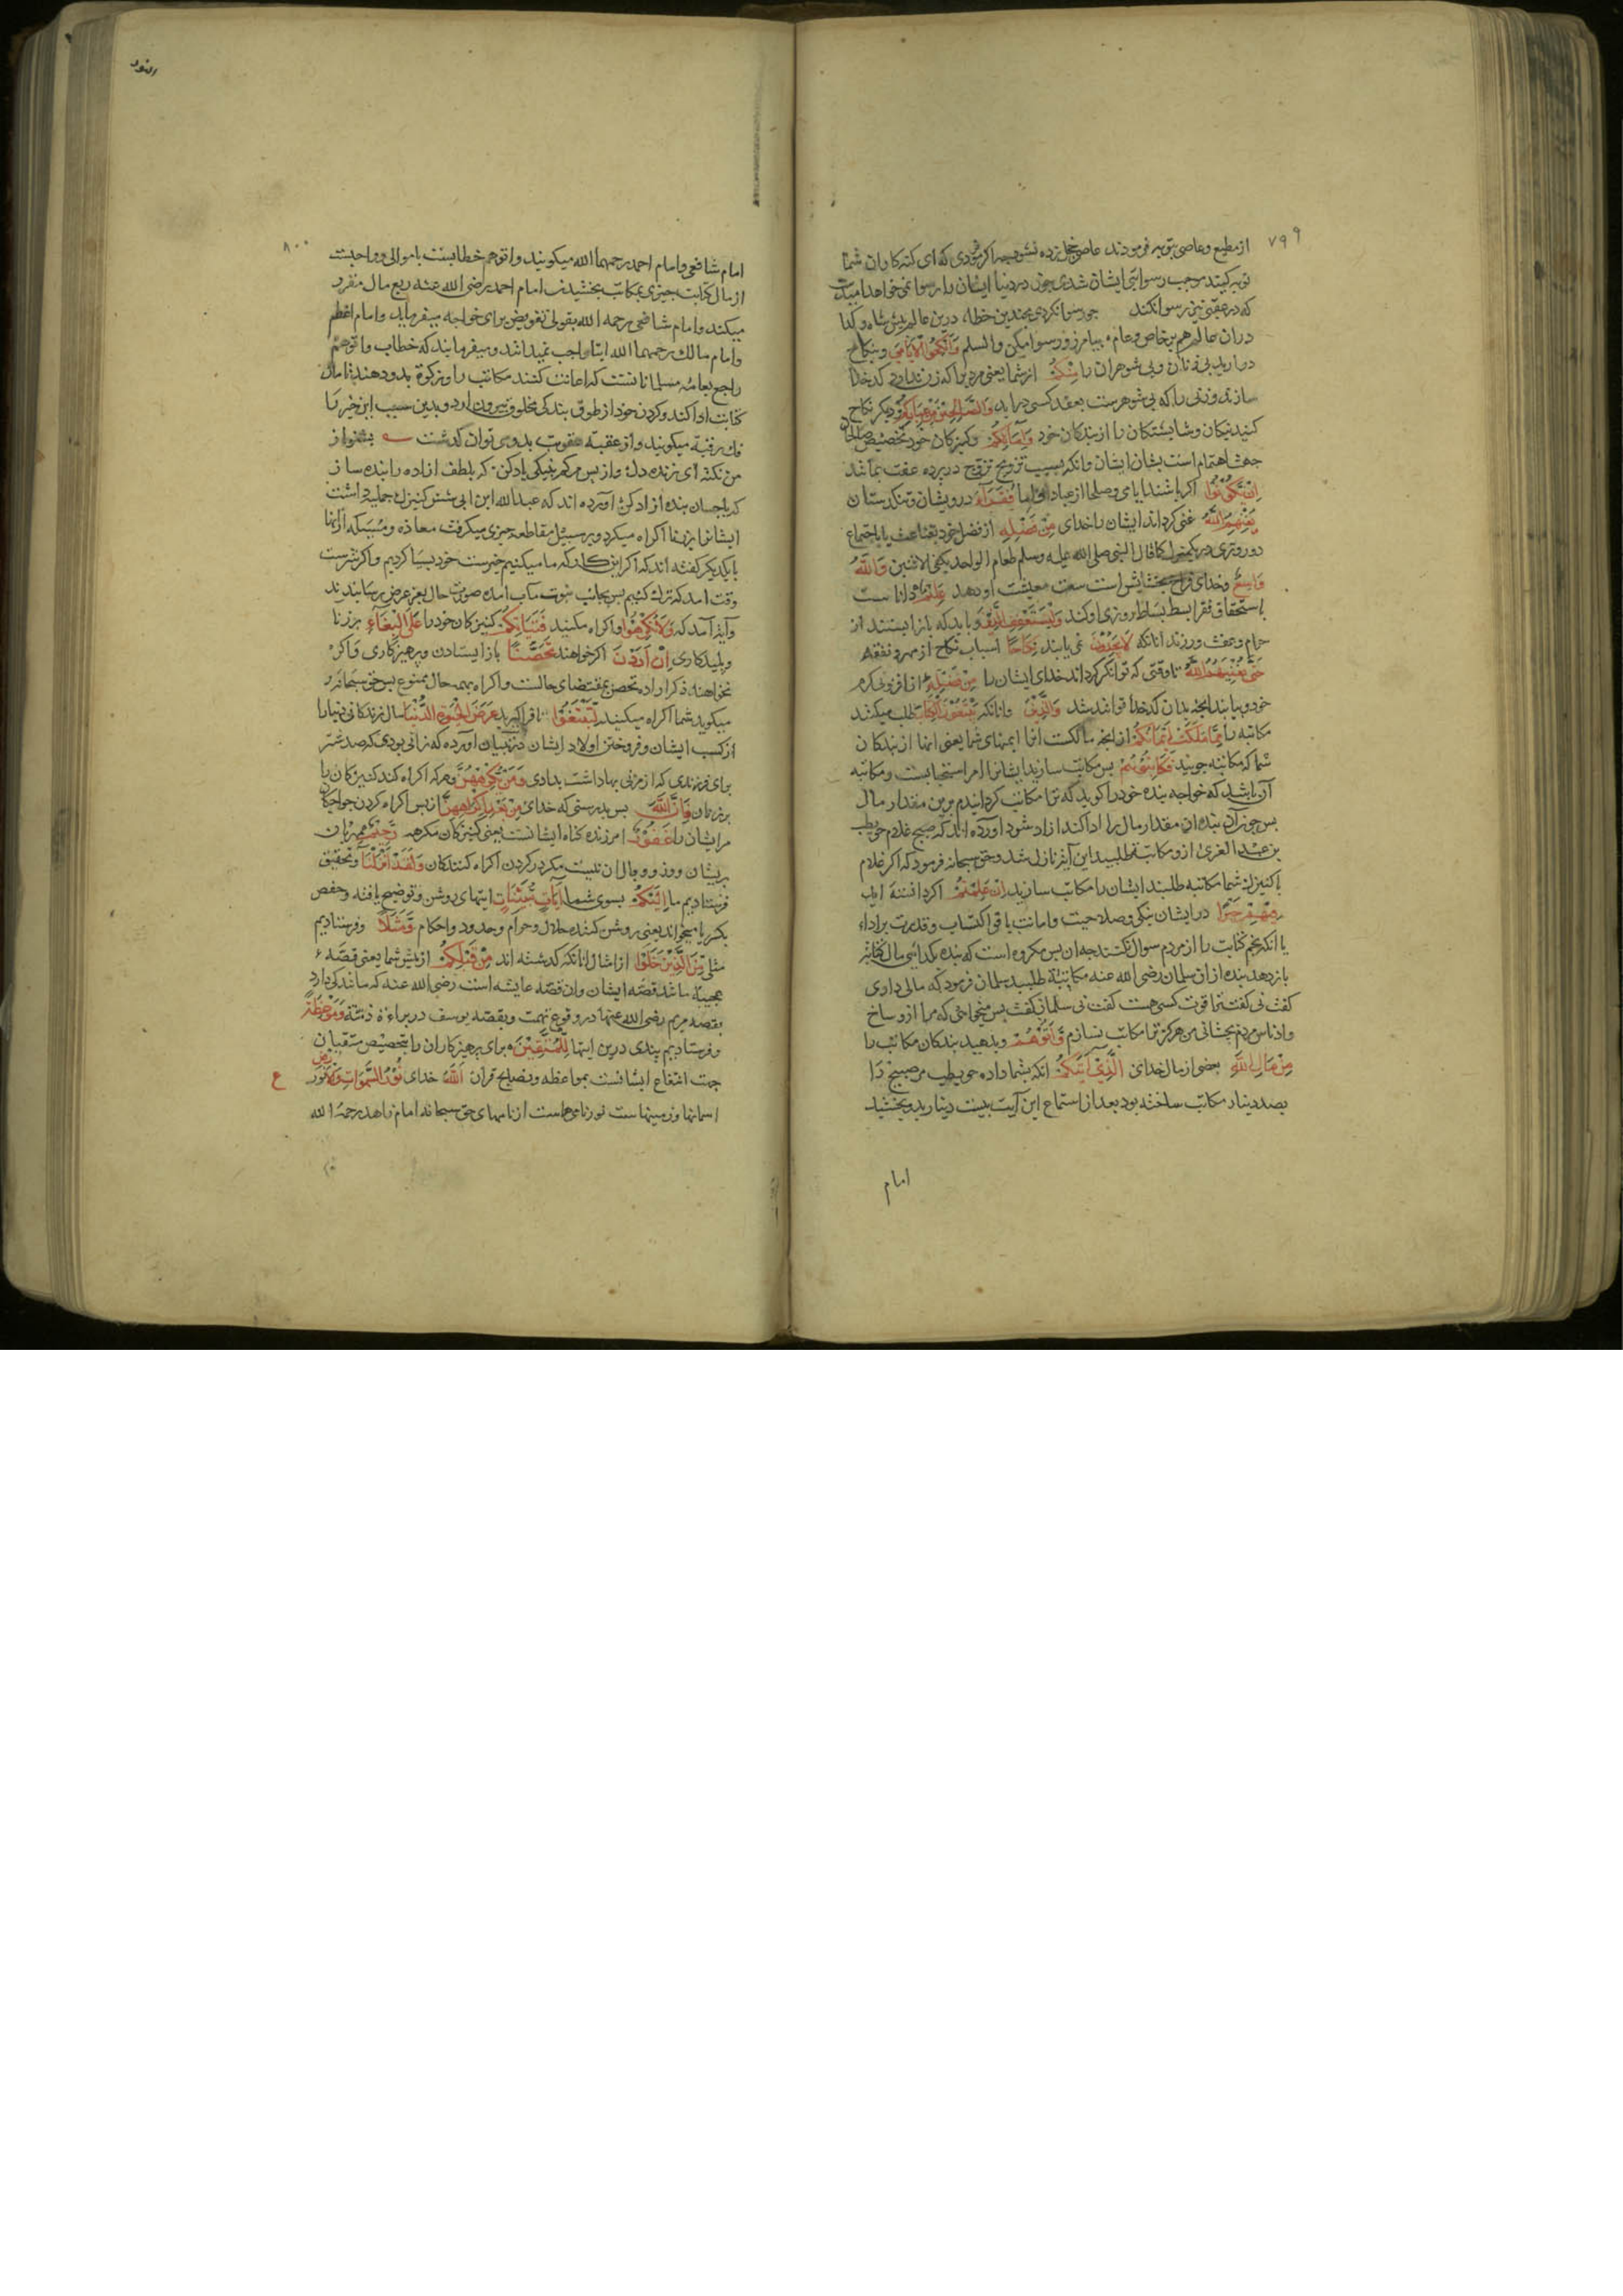 ۷۹۹
از مطیع و عاصی بتوبه فرمودند عاصی خجل زده نشود چه اکر فرمودی که ای کنه کاران شما
توبه کنید موجب رسوایی ایشان شدی چون در دنیا ایشان را رسوا نمی خواهد امیدست
که در عقبی نیز رسوا نکند چو رسوا نکردی بچندین خطا درین عالم پیش شاه و کدا
دران عالم هم بر خاص و عام بیامرز و رسوا مکن والسلم وَاَنْکِحُوا الْاَیَامٰی و بنکاح
درارید بی زنان و بی شوهران را مِنْکُمْ از شما یعنی مردی را که زن ندارد کدخدا
سازند و زنی را که بی شوهرست بعقد کسی درارید وَالصَّالِحِیْنَ مِنْ عِبَادِکُمْ و دیکر نکاح
کنید نیکان و شایستکان را از بندکان خود وَاِمَائِکُمْ و کنیزکان خود تخصیص صالحان
جهت اهتمام است بشان ایشان و انکه بسبب تزویج تزوج در پرده عفت بماند
اِنْ یَکُوْنُوْا اکر باشند ایامی و صلحا از عباد و اما فُقَرَآءَ درویشان و تنکدستان
یُغْنِهِمُ اللّٰهُ غنی کرداند ایشان را خدای مِنْ فَضْلِهِ از فضل خود بقناعت یا باجتماع
دو روزی در یکمنزل کما قال النبی صلی الله علیه وسلم طعام الواحد یکفی الاثنین وَاللّٰهُ
وَاسِعٌ و خدای فراخ بخشایش است سعت معیشت او دهد عَلِیْمٌ دانا ست
باستحقاق فقر ابسط بساط روزی او کند وَلْیَسْتَعْفِفِ الَّذِیْنَ و باید که باز ایستند از
حرام و عفت ورزند انانکه لَا یَجِدُوْنَ نمی یابند نِکَاحًا اسباب نکاح از مهر و نفقه
حَتّٰی یُغْنِیَهُمُ اللّٰهُ تا وقتی که توانکر کرداند خدای ایشان را مِنْ فَضْلِهِ از افزونی کرم
خود و بیابند انچه بدان کدخدا توانند شد وَالَّذِیْنَ وانانکه یَبْتَغُوْنَ الْکِتَابَ طلب میکنند
مکاتبه را مِمَّا مَلَکَتْ اَیْمَانُکُمْ از انچه مالکست انرا ایمنهای شما یعنی انها از بندکان
شما که مکاتبه جویند فَکَاتِبُوْهُمْ پس مکاتب سازید ایشانرا امر استحبابست و مکاتبه
آن باشد که خواجه بنده خود را کوید که ترا مکاتب کردانیدم برین مقدار مال
پس چون آن بنده ان مقدار مال را ادا کند ازاد شود اورده اند که صبیح غلام حویطب
بن عبد العزی ازو مکاتبه طلبید این آیه نازل شد و حق سبحانه فرمود که اکر غلام
یا کنیزک شما مکاتبه طلبند ایشان را مکاتب سازید اِنْ عَلِمْتُمْ اکر دانسته اید
فِیْهِمْ خَیْرًا در ایشان نیکی و صلاحیت و امانت یا قوا کتساب و قدرت بر اداء
یا انکه نجم کتابت را از مردم سوال نکنند چه ان بس مکروه است که بنده بکدائی مال کتابت
باز دهد بنده ازان سلمان رضی الله عنه مکاتبه طلبید سلمان فرمود که مالی داری
کفت نی کفت ترا قوت کسبی هست کفت نی سلمان کفت پس میخواهی که مرا از و ساخ
و ادناس مردم بچشانی من هرکز ترا مکاتب نسازم وَاٰتُوْهُمْ و بدهید بندکان مکاتب را
مِنْ مَالِ اللّٰهِ بعضی از مال خدای الَّذِیْ اٰتٰیکُمْ انکه بشما داده حویطب مر صبیح را
بصد دینار مکاتب ساخته بود بعد از استماع این آیت بیست دینار بدو بخشید
امام
النور
۸۰۰
امام شافعی و امام احمد رحمهما الله میکویند واتوهم خطابست با موالی و واجبست
از مال کتابت چیزی بمکاتب بخشیدن امام احمد رضی الله عنه ربع مال مقرر
میکند و امام شافعی رحمه الله بقولی تفویض برای خواجه میفرماید و امام اعظم
و امام مالک رحمهما الله ایتا واجب نمیدانند و میفرمایند که خطاب واتوهم
راجع بعامه مسلمانانست که اعانت کنند مکاتب را و زکوة بدو دهند تا مال
کتابت ادا کند و کردن خود از طوق بندکی مخلوق بیرون اورد و بدین سبب این خیر را
فک رقبه میکویند و از عقبه عقوبت بدو می توان کذشت بشنو از
من نکته ای زنده دل واز پس مرکم بنیکی یاد کن که بلطف ازاده را بنده ساز
که باحسان بنده ازاد کن اورده اند که عبد الله ابن ابی شش کنیزک جمیله داشت
ایشانرا بزنا اکراه میکرد و بر سبیل مقاطعه چیزی میکرفت معاذه و مسیکه ازانها
با یکدیکر کفته اند که اکر این کار که ما میکنیم خیرست خود بسیار کردیم و اکر شرست
وقت امد که ترک کنیم پس بجانب نبوت مآب امده صورت حال بعز عرض رسانیدند
و آیه آمد که وَلَا تُکْرِهُوْا و اکراه مکنید فَتَیَاتِکُمْ کنیزکان خود را عَلَی الْبِغَآءِ بر زنا
و پلیدکاری اِنْ اَرَدْنَ اکر خواهند تَحَصُّنًا باز ایستادن و پرهیزکاری و اکر
نخواهند ذکر اراده تحصن بمقتضای حالست و اکراه بهمه حال ممنوع پس حق سبحانه
میکوید شما اکراه میکنید لِتَبْتَغُوْا تا فرا کیرید عَرَضَ الْحَیٰوةِ الدُّنْیَا مال زندکانی دنیا را
از کسب ایشان و فروختن اولاد ایشان در تبیان اورده که زانی بودی که صد شتر
برای فرزندی که از مزنی بها داشت بدادی وَمَنْ یُکْرِهْهُنَّ و هرکه اکراه کند کنیزکان را
بر زنان فَاِنَّ اللّٰهَ پس بدرستی که خدای مِنْ بَعْدِ اِکْرَاهِهِنَّ از پس اکراه کردن خواجکان
مر ایشان را غَفُوْرٌ امرزنده کناه ایشانست یعنی کنیزکان مکرهه رَحِیْمٌ مهربان
بریشان و وزر و وبال ان نیست مکر در کردن اکراه کنندکان وَلَقَدْ اَنْزَلْنَا و بتحقیق
فرستادیم ما اِلَیْکُمْ بسوی شما اٰیَاتٍ مُبَیِّنَاتٍ ایتهای روشن و توضیح یافته و حفص
بکسر یا میخواند یعنی روشن کننده حلال و حرام و حدود و احکام وَمَثَلًا و فرستادیم
مثلی مِنَ الَّذِیْنَ خَلَوْا از امثال انانکه کذشته اند مِنْ قَبْلِکُمْ از پیش شما یعنی قصه
عجیبه مانند قصه ایشان وان قصه عایشه است رضی الله عنه که مانندکی دارد
بقصه مریم رضی الله عنها در وقوع تهمت و بقصه یوسف در براءة ذمة وَمَوْعِظَةً
و فرستادیم پندی درین ایتها لِلْمُتَّقِیْنَ برای پرهیزکاران را تخصیص متقیان
جهت انتفاع ایشانست بمواعظه و نصایح قران اَللّٰهُ خدای نُوْرُ السَّمٰوَاتِ وَالْاَرْضِ نور
ع
اسمانها و زمینهاست نور نامی هاست از نامهای حق سبحانه امام زاهد رحمه الله